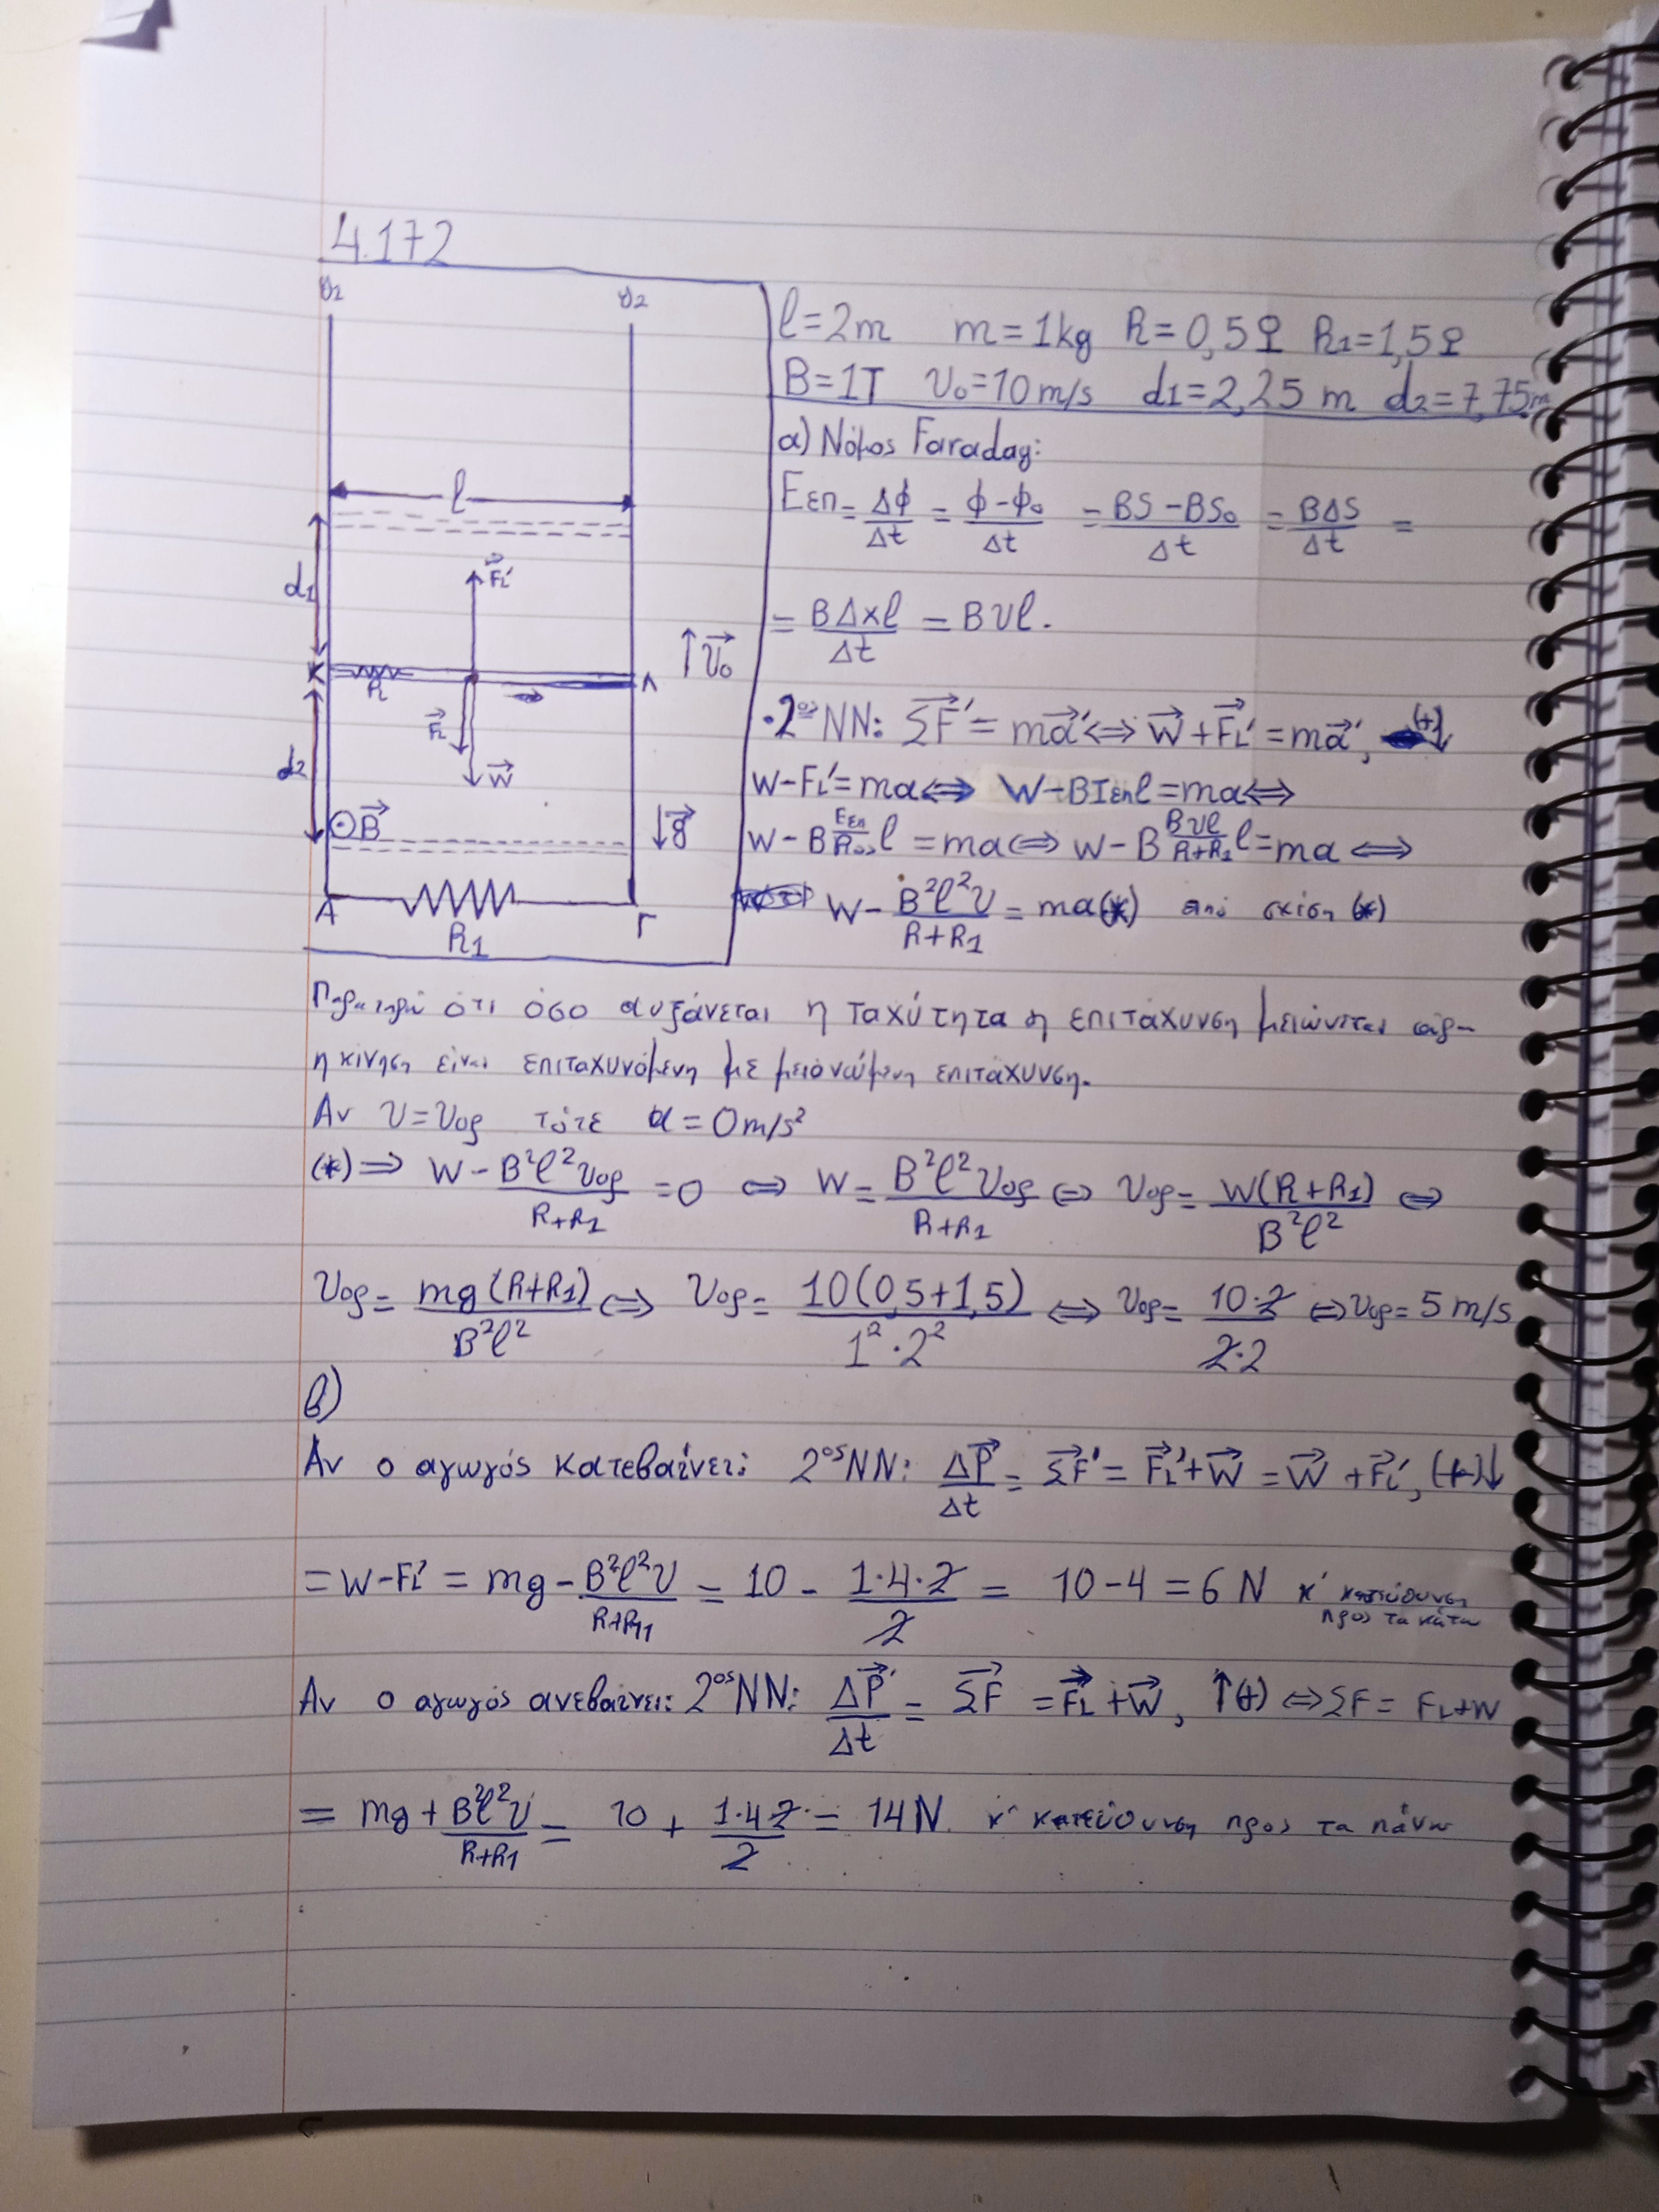 4.172
υ2 υ2
l=2m m=1kg R=0,5Ω R1=1,5Ω
B=1T υ0=10m/s d1=2,25 m d2=7,75m
α) Νόμος Faraday:
Eεπ = Δφ/Δt = φ-φ0/Δt = BS-BS0/Δt = BΔS/Δt =
= BΔxl/Δt = BUl.
l
d1
FL'
K R Λ
↑υ0
FL
W
d2
⊙B
↓g
A R1 Γ
·2ος NN: ΣF' = mα' ⇔ W+FL' = mα', (+)↓
W-FL'=mα ⇔ W-BIεπl=mα ⇔
W-B Eεπ/Rολ l = mα ⇔ W-B BUl/R+R1 l=mα ⇔
W- B²l²υ/R+R1 = mα(*) από σχέση (*)
Παρατηρώ ότι όσο αυξάνεται η ταχύτητα η επιτάχυνση μειώνεται άρα
η κίνηση είναι επιταχυνόμενη με μειονώμενη επιτάχυνση.
Αν υ=υορ τότε α=0m/s²
(*)⇒ W- B²l²υορ/R+R1 =0 ⇔ W= B²l²υορ/R+R1 ⇔ υορ= W(R+R1)/B²l² ⇔
υορ= mg(R+R1)/B²l² ⇔ υορ= 10(0,5+1,5)/1²·2² ⇔ υορ= 10·2/2·2 ⇔ υορ= 5 m/s
β)
Αν ο αγωγός κατεβαίνει: 2ος NN: ΔP/Δt = ΣF' = FL'+W = W+FL', (+)↓
= W-FL' = mg- B²l²υ/R+R1 = 10 - 1·4·2/2 = 10-4 = 6 N κ' κατεύθυνση
προς τα κάτω
Αν ο αγωγός ανεβαίνει: 2ος NN: ΔP'/Δt = ΣF = FL+W, ↑(+) ⇔ ΣF = FL+W
= mg+ B²l²υ/R+R1 = 10 + 1·4·2/2 = 14N. κ' κατεύθυνση προς τα πάνω